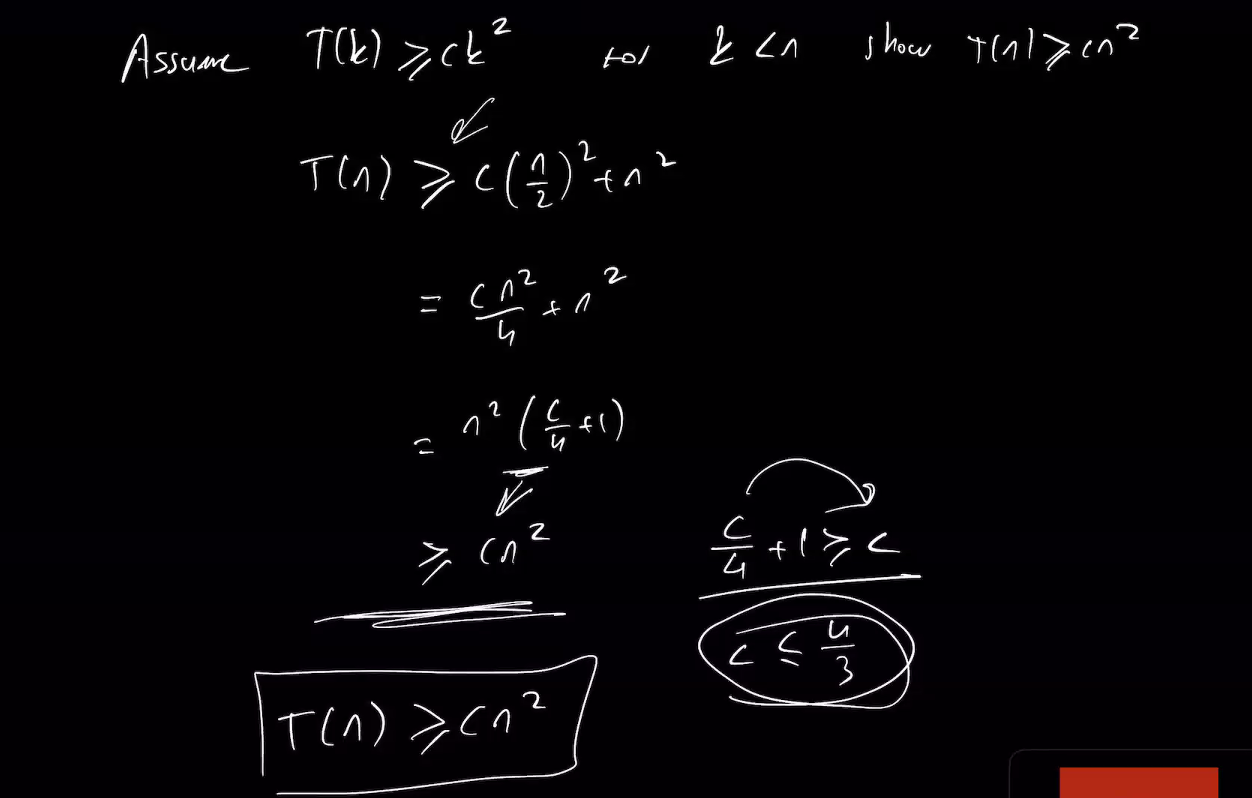 Assume T(k) ≥ ck² for k < n show T(n) ≥ cn²
T(n) ≥ c(n/2)² + n²
= cn²/4 + n²
= n² (c/4 + 1)
≥ cn²
c/4 + 1 ≥ c
c ≤ 4/3
T(n) ≥ cn²